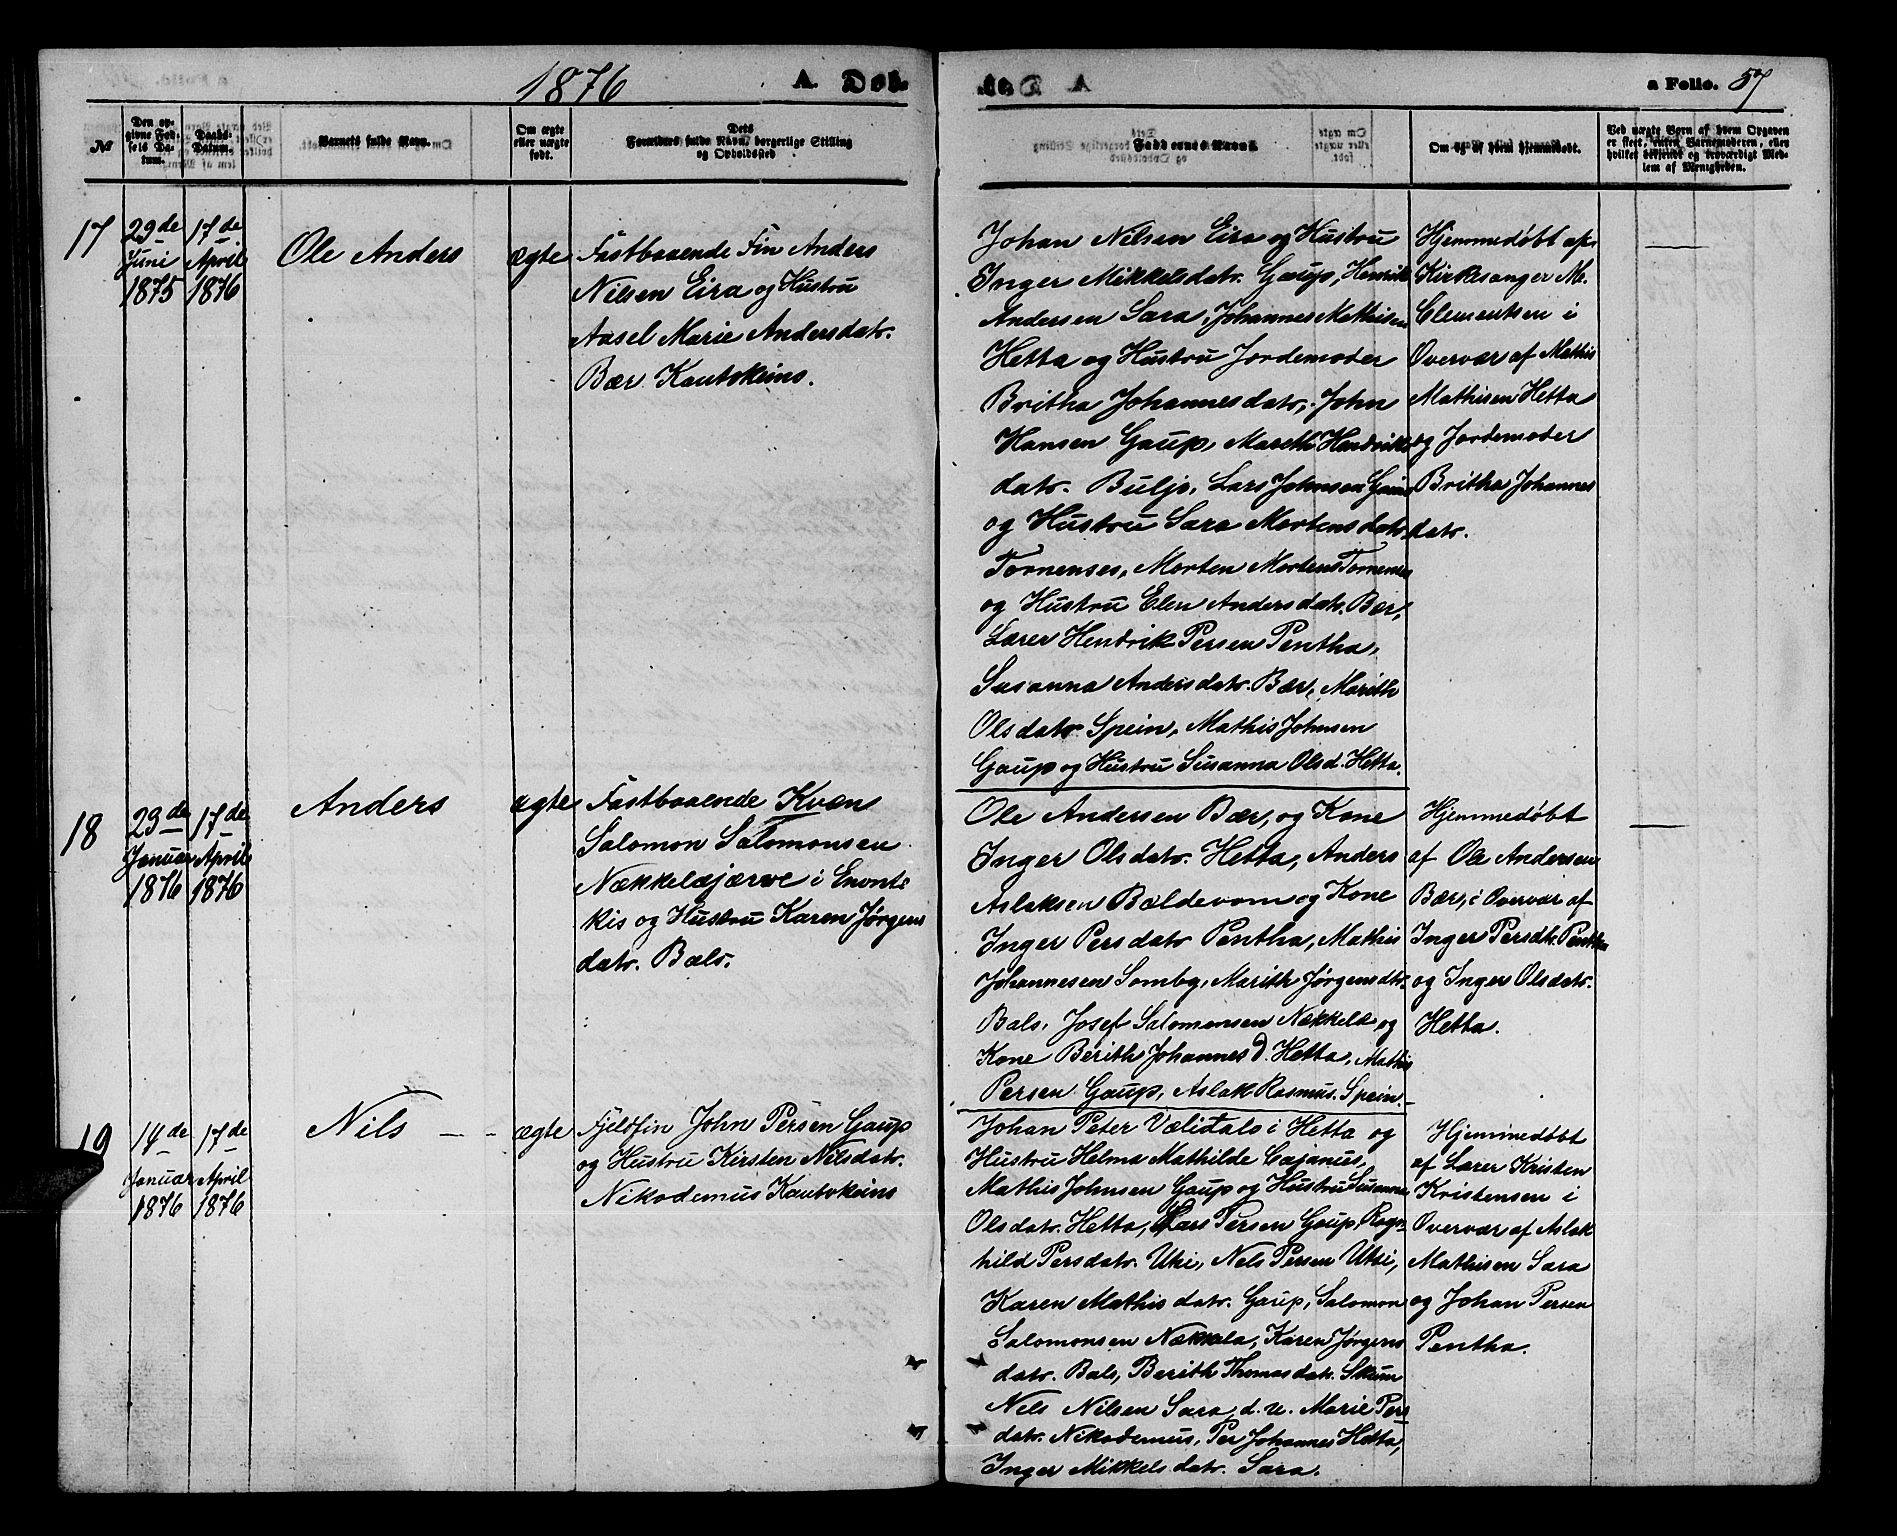 1876 A. Døb.
№
Den op-
givne Fød-
sels Da-
tum.
Daabs-
Datum.
Barnets fulde Navn.
Om ægte
eller uægte
født.
Dets
Forældres fulde Navn, borgerlige Stilling
og Opholdssted
17
29de
Juni
1875
17de
April
1876
Ole Anders
ægte
Fastboaende Fin Anders
Nilsen Eira og Hustru
Aasel Marie Andersdatr.
Bær Kautokeino.
18
23de
Januar
1876
17de
April
1876
Anders
ægte
Fastboaende Kvæn
Salomon Salomonsen
Nækkelæjærve i Enonte
kis og Hustru Karen Jørgens
datr. Bals.
19
14de
Januar
1876
17de
April
1876
Nils
ægte
Fjeldfin John Persen Gaup
og Hustru Kirsten Nilsdatr.
Nikodemus Kautokeino
a Folio. 57
Faddernes Navne
Om og af hvem hjemmedøbt.
Ved uægte Børn af hvem Opgaven
er skeet, enten Barnemoderen, eller
hvilket bekjendt og troværdigt Med-
lem af Menigheden.
Johan Nilsen Eira og Hustru
Inger Mikkelsdatr. Gaup, Henrik
Andersen Sara, Johannes Mathisen
Hetta og Hustru Jordemoder
Britha Johannesdatr, John
Hansen Gaup, Mareth Hendriks
datr. Buljo, Lars Johnsen Gaino
og Hustru Sara Mortensdatr
Tornenses, Morten Mortens Tornenses
og Hustru Elen Andersdatr. Bær,
Lærer Hendrik Persen Pentha,
Susanna Andersdatr. Bær, Marith
Olsdatr. Spein, Mathis Johnsen
Gaup og Hustru Susanna Olsd. Hetta.
Hjemmedøbt af
Kirkesanger M.
Clementsen i
Overvær af Mathis
Mathisen Hetta
og Jordemoder
Britha Johannes
datr.
Ole Andersen Bær, og Kone
Inger Olsdatr. Hetta, Anders
Aslaksen Bældevom og Kone
Inger Persdatr Pentha, Mathis
Johannesen Somby, Marith Jørgensdtr.
Bals, Josef Salomonsen Nækkelæ og
Kone Berith Johannes D. Hetta, Mathis
Persen Gaup, Aslak Rasmus. Spein.
Hjemmedøbt
af Ole Andersen
Bær, i Overvær af
Inger Persdtr. Pentha
og Inger Olsdatr.
Hetta.
Johan Peter Vælidals i Hetta og
Hustru Helma Mathilde Cajanus,
Mathis Johnsen Gaup og Hustru Susanna
Olsdatr. Hetta, Lars Persen Gaup, Ragn
hild Persdatr. Utsi, Nels Persen Utsi,
Karen Mathisdatr. Gaup, Salomon
Salomonsen Nækkala, Karen Jørgens
datr. Bals, Berith Thomasdatr. Skum
Nels Nilsen Sara, d. u. Marie Pers
datr. Nikodemus, Per Johannes Hetta,
Inger Mikkelsdatr. Sara.
Hjemmedøbt
af Lærer Kristen
Kristensen i
Overvær af Aslak
Mathisen Sara
og Johan Persen
Pentha.